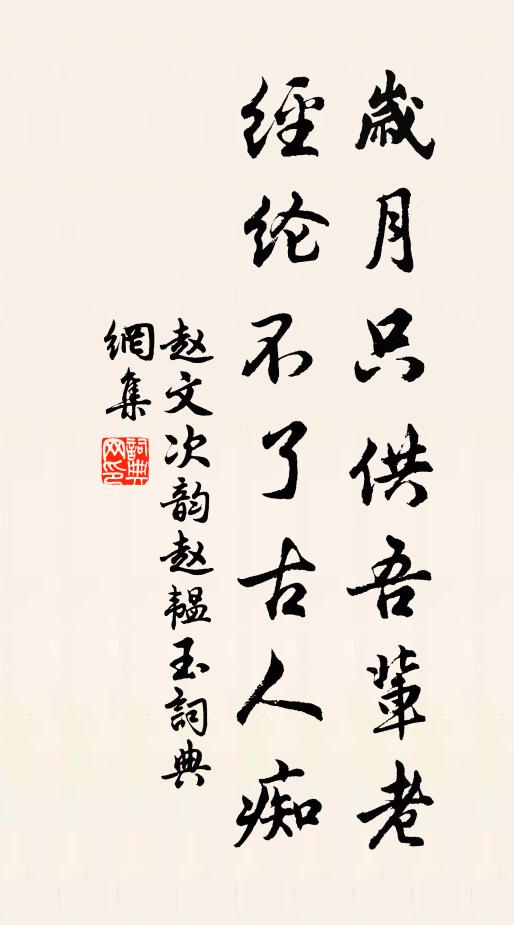 歲月只供吾輩老
經纶不了古人痴
赵文次韵赵韫玉詞典
網集
詞典網印